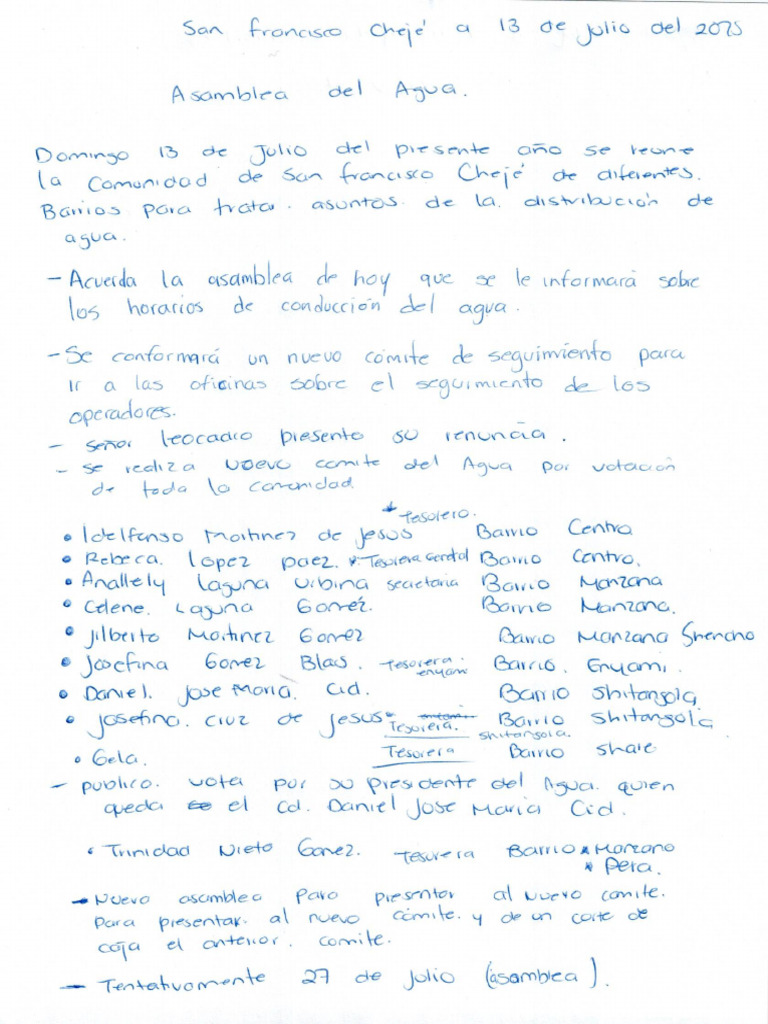 San Francisco Chejé a 13 de Julio del 2025
Asamblea del Agua.
Domingo 13 de Julio del presente año se reune
la Comunidad de San Francisco Chejé de diferentes.
Barrios para tratar. asuntos. de la distribución de
agua.
- Acuerda la asamblea de hoy que se le informará sobre
los horarios de conducción del agua.
- Se conformará un nuevo cómite de seguimiento para
ir a las oficinas sobre el seguimiento de los
operadores.
- señor leocadio presento su renuncia.
- se realiza nuevo comite del Agua por votación
de toda la comunidad.
* Tesorero.
• Idelfonso Martinez de Jesus Barrio Centro
• Rebeca. lopez paez. * Tesorera General Barrio Centro.
• Anallely laguna urbina secretaria Barrio Manzana
• Celene. Laguna Goméz. Barrio Manzana.
• Jilberto Martinez Gomez Barrio Manzana Shencho
• Josefina Gomez Blas. Tesorera. enyami Barrio. Enyami.
• Daniel. Jose Maria. Cid. Barrio Shitangola
• Josefina. cruz de Jesus Tesorera. shitangola. Barrio Shitangola
• Gela. Tesorera Barrio
- publico. vota por su presidente del Agua. quien
queda el Cd. Daniel Jose Maria Cid.
• Trinidad Nieto Gomez. Tesorera Barrio * Manzano
* Pera.
- Nuevo asamblea para presentar al nuevo comite.
para presentar. al nuevo cómite. y de un corte de
caja el anterior. comite.
- Tentativamente 27 de julio (asamblea).